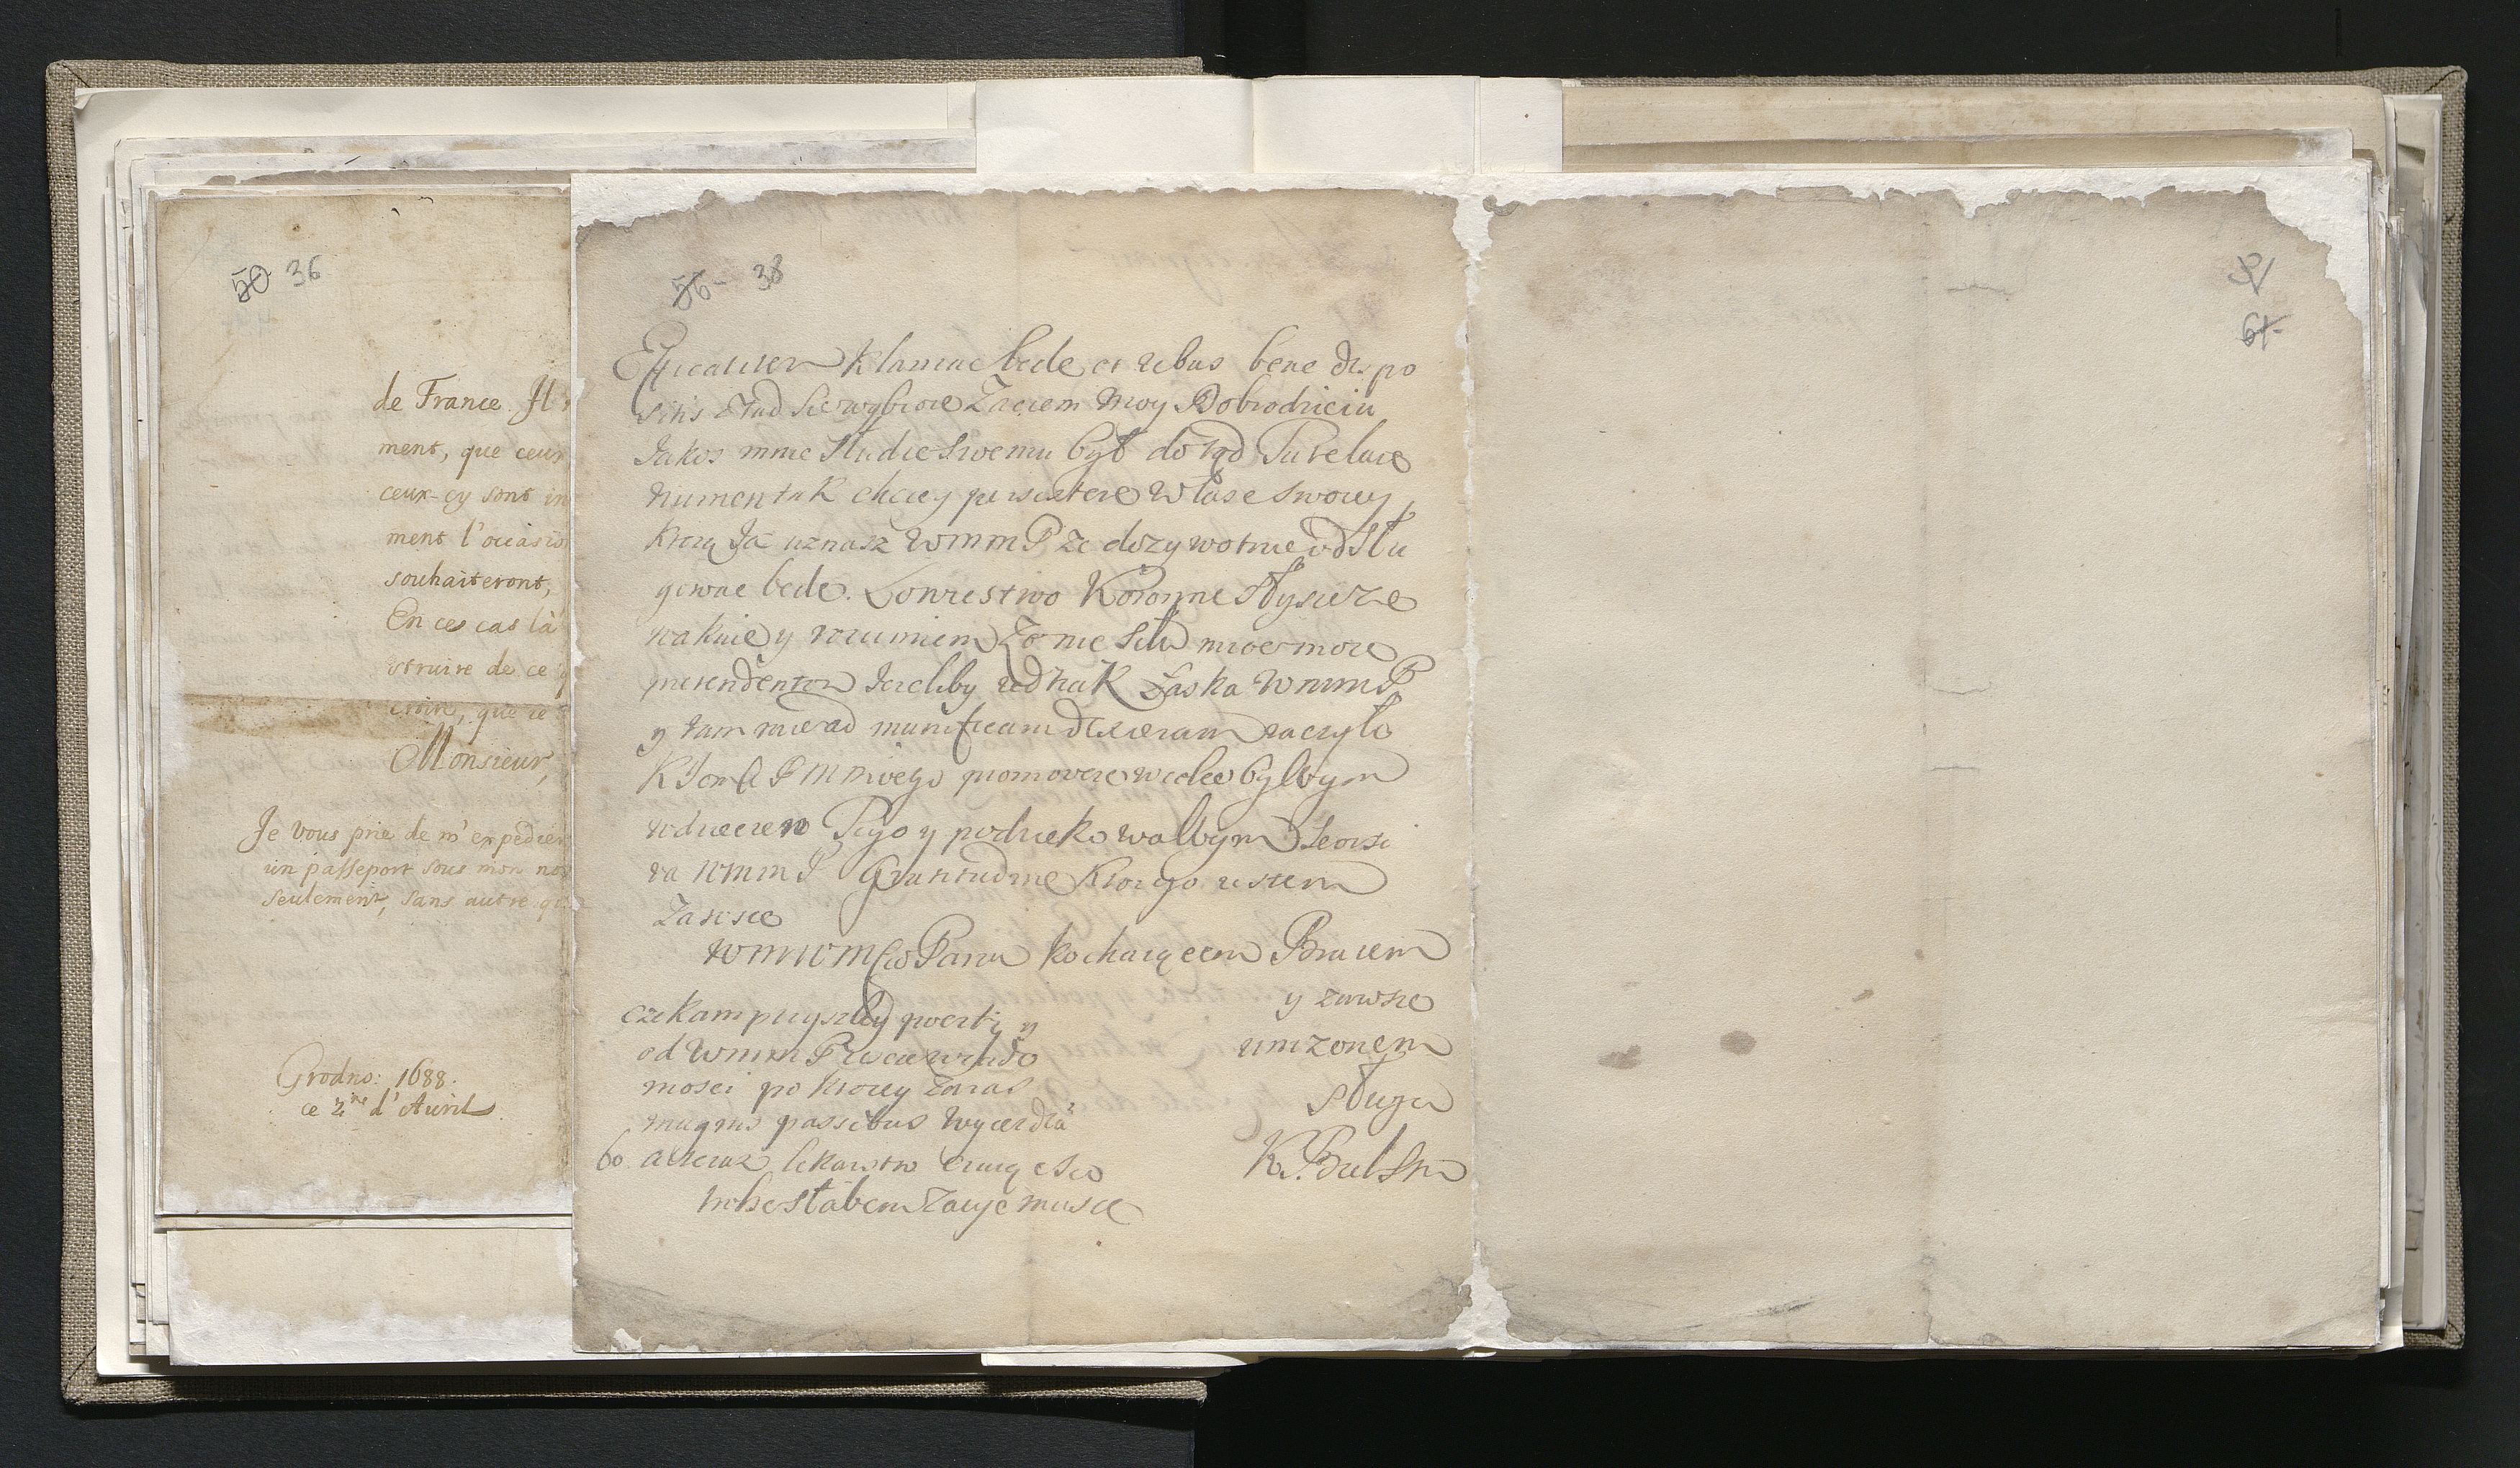 50 36
de France. Il
ment, que ceux
ceux-cy sont in
ment l'occasio
souhaiteront,
En ces cas là
struire de ce q
croire, que ie
Monsieur,
Je vous prie de m'expedier
un passeport sous mon no
seulement, sans autre qu
Grodno: 1688.
ce 2.me d'Avril
56- 38
klaniac bede et rebus bene dispo
sitis ztad sie wybiore Zaczem Moy Dobrodzieiu
Jakos mnie Słudze swemu był dotąd Tutelare
numen tak chciey persistere w łasce swoiey
ktorą Ja uznasz WMM P ze dozywotnie odsłu
giwac bede. Łowiectwo Koronne słysze ze
wakuie y rozumiem Ze nie siła miec moze
pretendentow Jezeliby iednak Łaska WMM P
y tam mie ad munificam dexteram raczyła
K Jem P M mwego promovere wielce byłbym
wdzieczen Tego y podziekowałbym
za WMM P Gratitudine ktorego iestem
Zawsze
WMMWMC Pana kochaiącem Bratem
y zawsze
unizonem
sługa
K. Bielski
czekam przyszłey poczty y
od WMM P wiado
mosci po ktorey Zaraz
magnis passibus wyiezdza
bo a teraz lekarstw
słabem Zazyc musze
61-